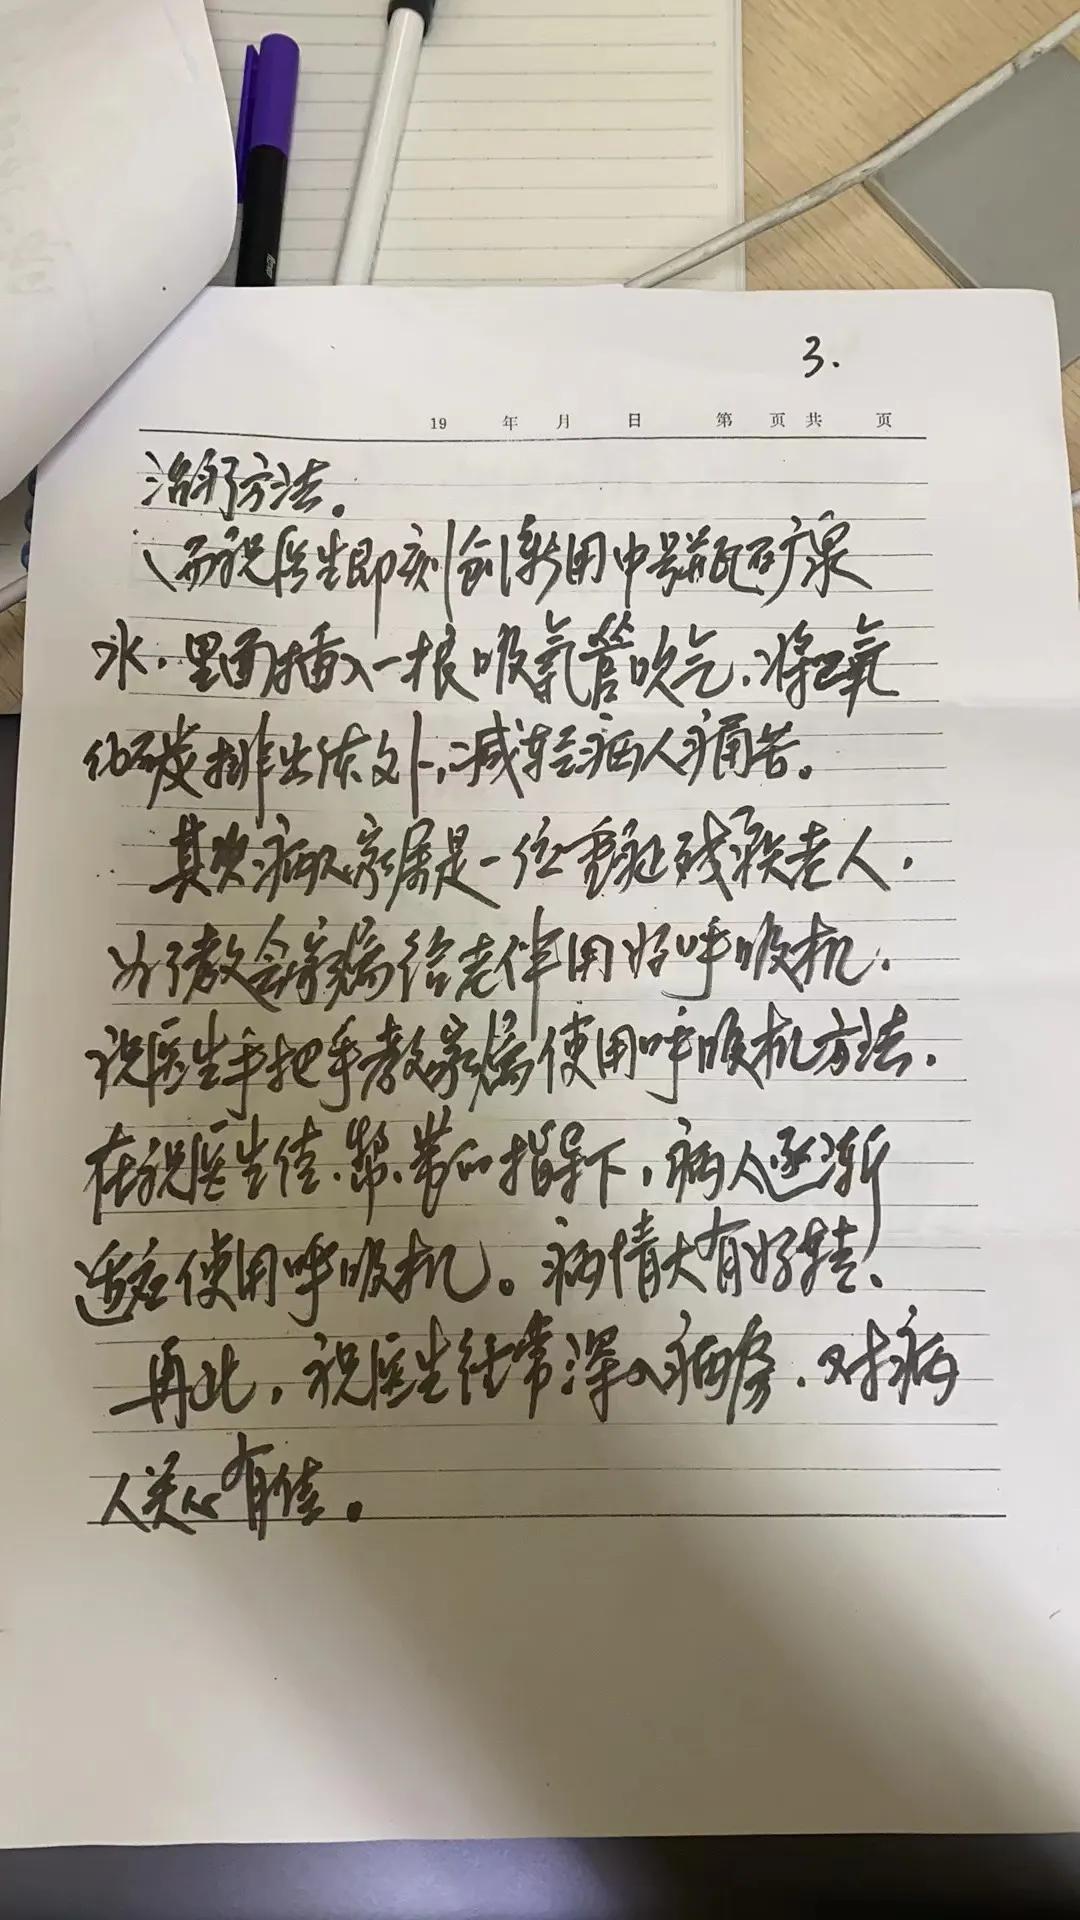 3.
19 年 月 日 第 页 共 页
治疗方法。
而祝医生即刻创新用中号瓶矿泉
水,里面插入一根吸氧管吹气,将二氧
化碳排出体外,减轻病人痛苦。
其次病人家属是一位重症残疾老人,
为了教会家属给老伴用好呼吸机,
祝医生手把手教家属使用呼吸机方法,
在祝医生传、帮、带的指导下,病人逐渐
适应使用呼吸机。病情大有好转、
再此,祝医生经常深入病房,对病
人关心有佳。